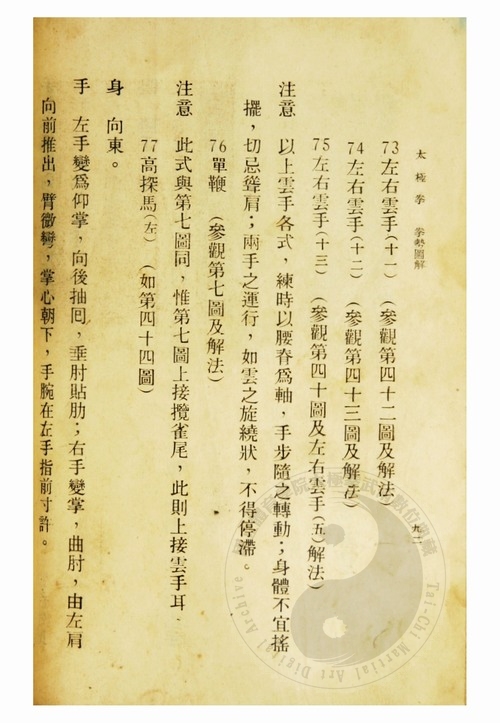 太極拳　拳勢圖解
73左右雲手(十一)　(參觀第四十二圖及解法)
74左右雲手(十二)　(參觀第四十三圖及解法)
75左右雲手(十三)　(參觀第四十圖及左右雲手(五)解法)
注意　以上雲手各式，練時以腰脊爲軸，手步隨之轉動；身體不宜搖
擺，切忌聳肩；兩手之運行，如雲之旋繞狀，不得停滯。
76單鞭　(參觀第七圖及解法)
注意　此式與第七圖同，惟第七圖上接攬雀尾，此則上接雲手耳、
77高探馬(左)　(如第四十四圖)
身　向東。
手　左手變爲仰掌，向後抽囘，垂肘貼肋；右手變掌，曲肘，由左肩
向前推出，臂微彎，掌心朝下，手腕在左手指前寸許。
Tai-Chi Martial Art Digital Archive